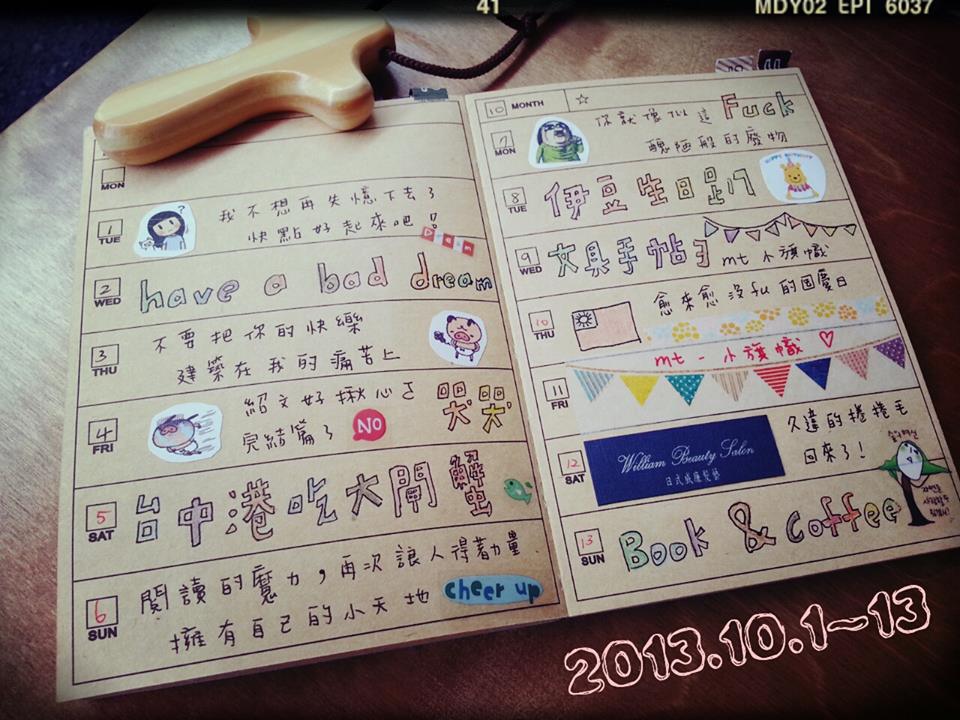 41
MDY02 EPI 6037
MON
1
TUE
我不想再失憶下去了
快點好起來吧!
2
WED
have a bad dream
3
THU
不要把你的快樂
建築在我的痛苦上
4
FRI
紹文好揪心さ
完結篇了
NO
哭哭
5
SAT
台中港吃大閘蟹
6
SUN
閱讀的魔力,再次讓人得著力量
擁有自己的小天地
cheer up
10
MONTH
☆
11
7
MON
你就像似這Fuck
醜陋般的廢物
8
TUE
伊豆生日
HAPPY BIRTHDAY
9
WED
文具手帖3
mt 小旗幟
10
THU
愈來愈沒fu的國慶日
11
FRI
mt - 小旗幟 ♡
12
SAT
William Beauty Salon
日式威廉髮藝
久違的捲捲毛
回來了!
13
SUN
Book & Coffee
2013.10.1~13